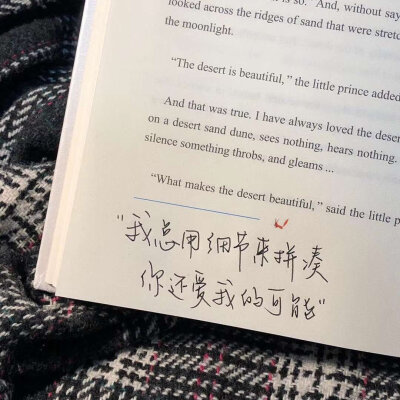 is so. "And, without say
looked across the ridges of sand that were stretc
the moonlight.
"The desert is beautiful," the little prince added
And that was true. I have always loved the deser
on a desert sand dune, sees nothing, hears nothing.
silence something throbs, and gleams ...
"What makes the desert beautiful," said the little p
"我总用细节来拼凑
你还爱我的可能"